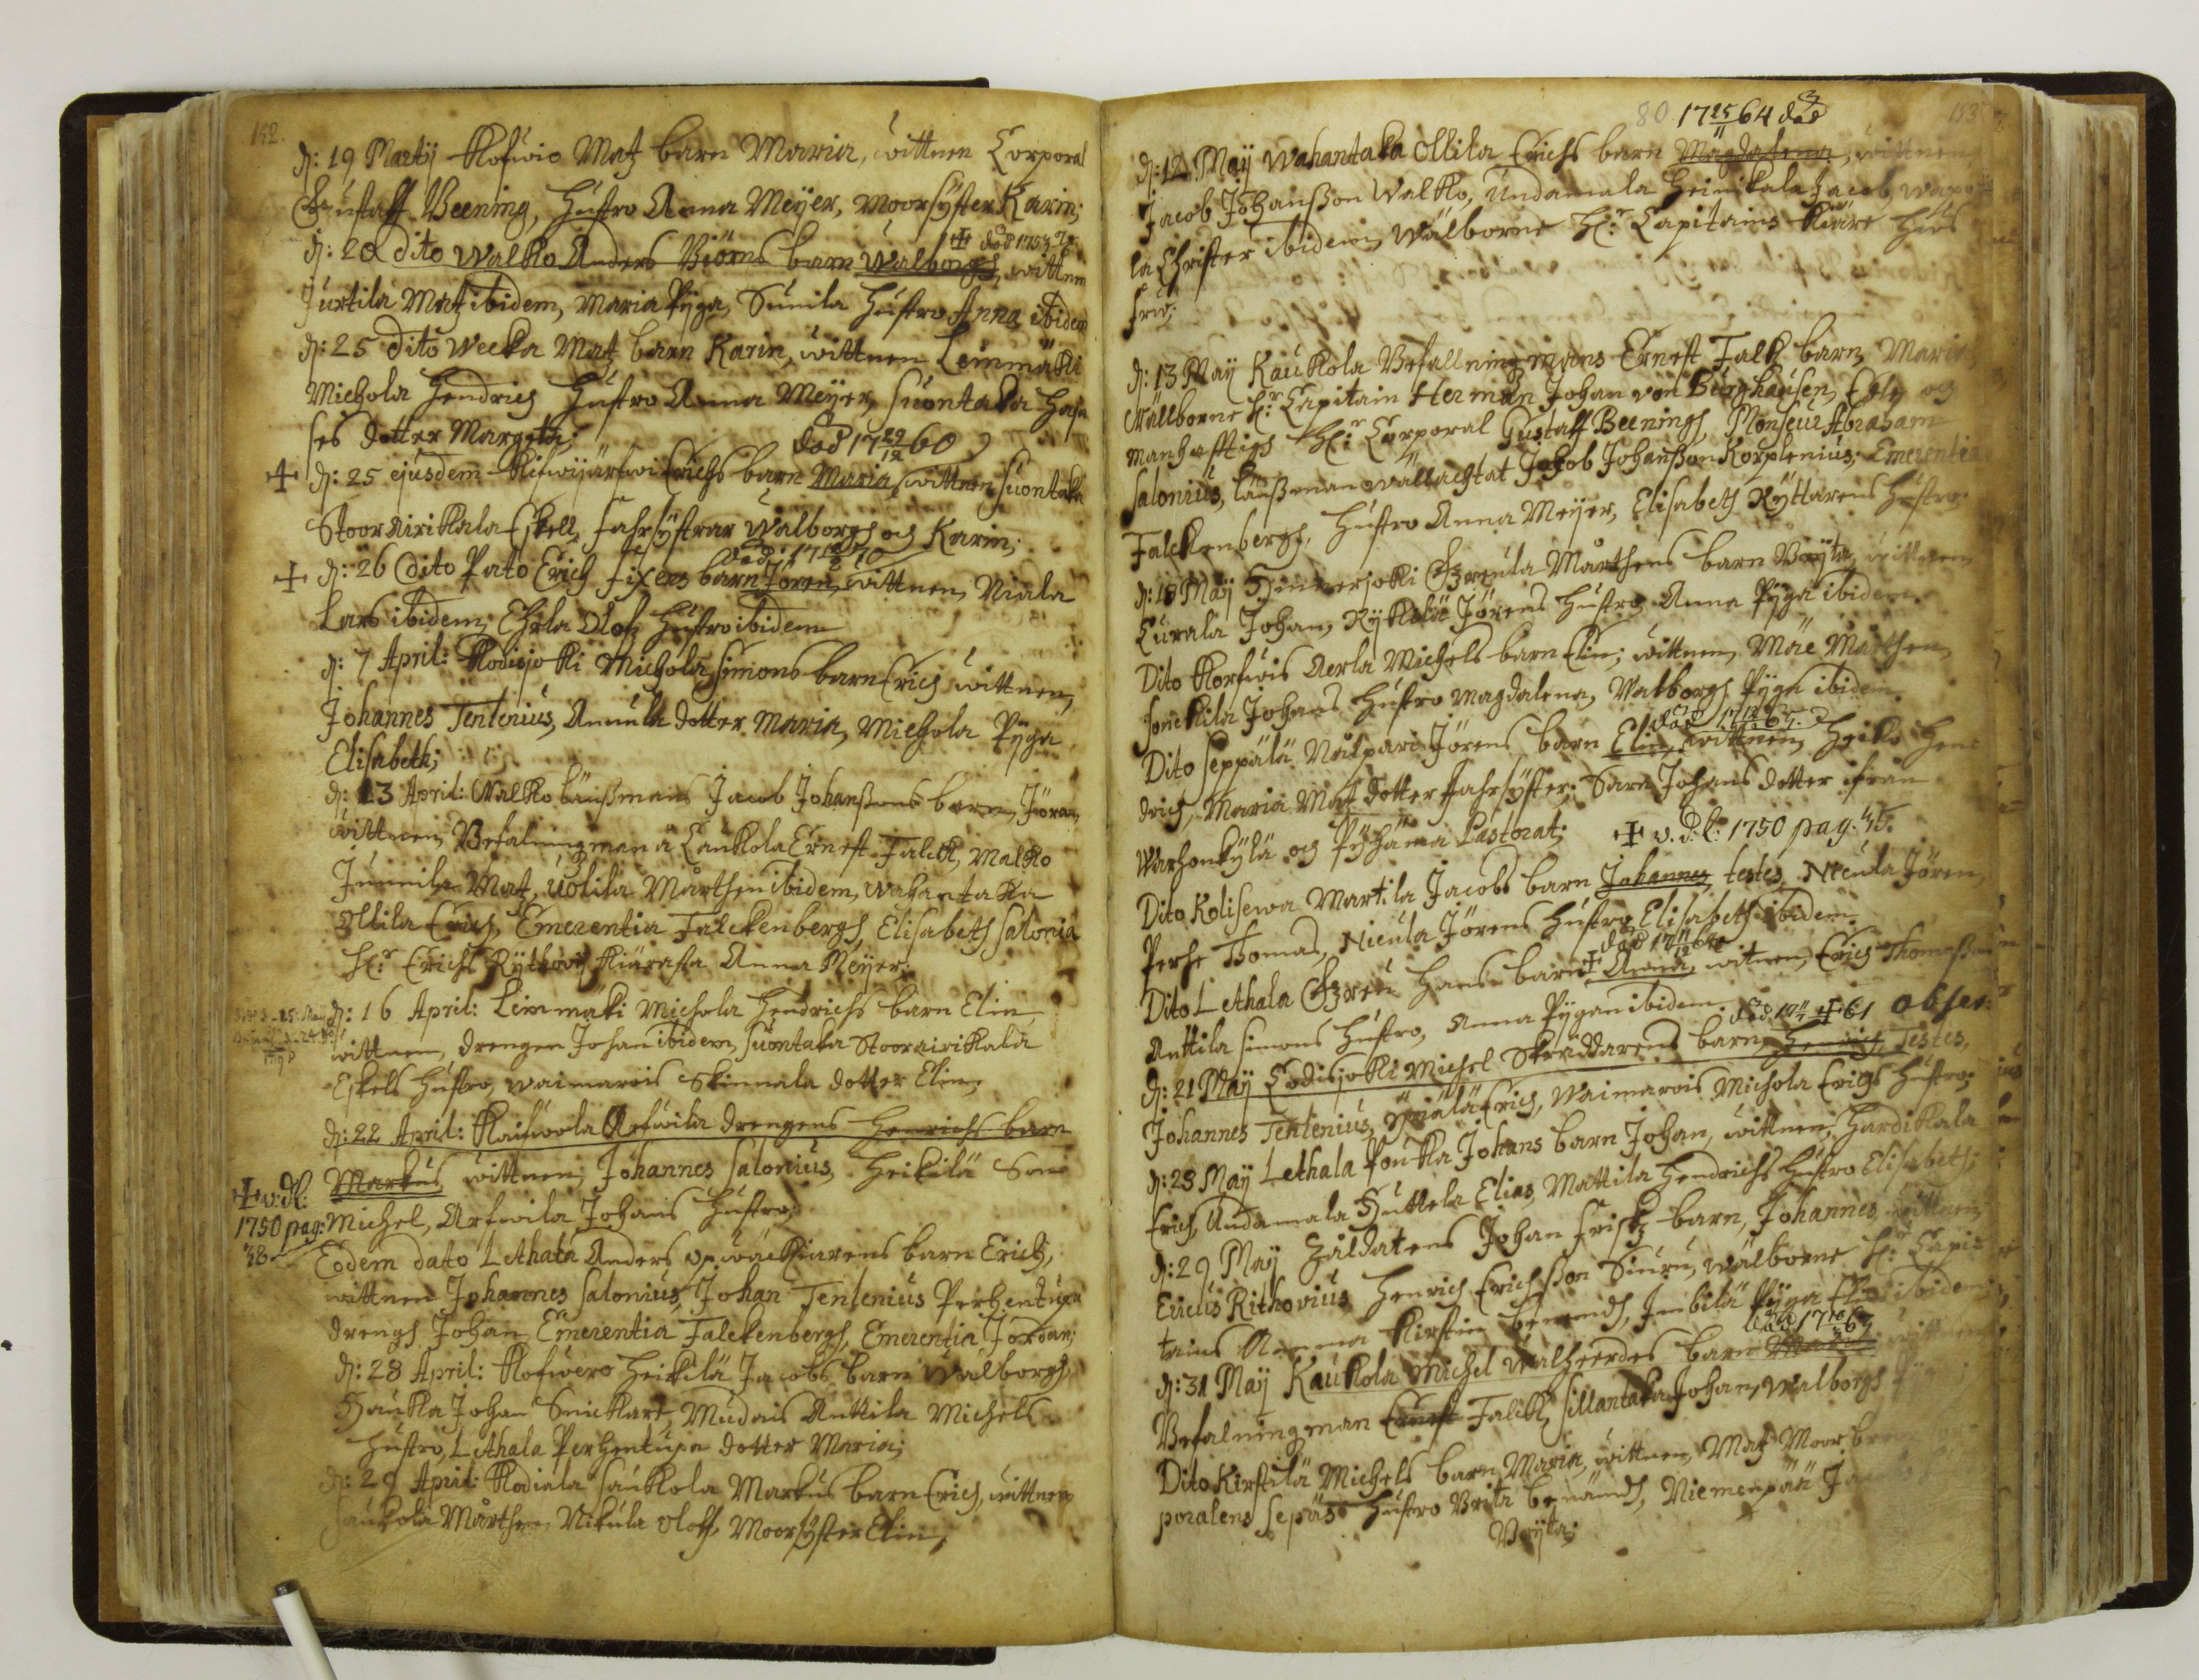 152.
d: 19 Martij Kofwio Matz barn Maria, wittnen Corporal
Gustaff Beening, hustro Anna Meijer, Moorsyster Karin;
✝ död 1753
d: 20 dito Walko Anders Biörns barn Walborgh, wittnen
Jurtila Matz ibidem, Maria Pÿga, Sunila hustro Anna ibidem
d: 25 dito Weeka Matz barn Karin, wittnen Leinmäki
Michola Hendrich hustro Anna Meijer, Suontaka
ses dotter Margeta;
död 17 29/12 60
✝ d: 25 ejusdem Erichs barn Maria, wittnen Suontaka
Stoor Airikkala Eskell, fahrsÿstrar Walborgh og Karin;
död 17 70
✝ d: 26 dito Pato Erich fixers barn Jören, wittnen, Niala
Lars ibidem, Ehrla Olofz hustro ibidem
d: 7 April: Kodisjoki Michola Simons barn Erich wittnen,
Johannes Tenlenius, Annula dotter Maria, Michola Pÿga
Elisabeth;
d: 13 April: Walko länßmans Jacob Johanßons barn Jöran,
wittnen, Befalningsman a Caukola Ernest Falck, Walko
Junnila Matz, Uolila Mårthen ibidem, Wahantaka
Ollila Erich, Emerentia Falckenbergh, Elisabeth Salonia
H:r Erichs Rythovij kiärasta Anna Meijer.
d: 16 April: Leinmäki Michola Hendrichs barn Elin
wittnen, drengen Johan ibidem, Suontaka Stoorairikala
Eskels hustro, Waimarois Skinnala dotter Elin,
d: 22 April: Kaifwola Arfwila drengens Henrichs barn
Markus wittnen, Johannes Salonius, Heikilä Son
✝ v. dl:
1750 pag:
38
Michel, Arfwila Johans hustro;
Eodem dato Lethala Anders opwäckiarens barn Erich,
wittnen Johannes Salonius, Johan Tenlenius Perhentupa
drengh Johan Emerentia Falckenbergh, Emerentia Jordan;
d: 28 April: Kofwero Heikilä Jacobs barn Walborgh,
Haukka Johan Snickare, Mudais Anttila Michels
hustro, Lethala Perhentupa dotter Maria;
d: 29 April: Kodiala Saukola Markus barn Erich, wittnen
Saukola Mårthen, Nikula Oloff, Moorsÿster Elin,
80
17 25/11 64 död
153
d: 12 Maij Wahantaka Ollila Erichs barn Magdalena, wittnen
Jacob Johanßon Walko, Undamala Heinikala Jacob,
la Christer ibidem, Wälborne H:r Capitains kiäre
fru;
d: 13 Maij Kaukola Befallningzmans Ernest Falk barn, Maria
Wällborne H:r Capitain Herman Johan von Burghausen, Edle og
Manhafftigh H:r Corporal Gustaff Beenings, Monseur Abraham
Salonius, länßeman wällachtat Jakob Johanßon Korplenius, Emerentia
Falckenbergh, hustro Anna Meijer, Elisabeth Ryttarens hustro
d: 18 Maij Hinnerjoki Mårthens barn Brijta, wittnen
Eurala Johan, Rykölä Jörens hustro Anna Pÿga ibidem.
Dito Korfwois Aerla Michels barn Elin; wittnen, Mäe Marthen,
Sonckila Johans hustro Magdalena, Walborgh Pÿga ibidem
död 17 67.
Dito Seppälä Nälpari Jörens barn Elin, wittnen, Heiko Hen
drich, Maria Matz dotter fahrsÿster; Sara Johans dotter ifrån
Warhonkÿlä og Pyhäma Pastorat;
✝ v. d.l: 1750 pag. 45.
Dito Kolisewa Martila Jacobs barn Johannes, testes, Nicula Jören,
Perhe Thomas, Nicula Jörens hustro Elisabeth ibidem
död 17 11/12 64
Dito Lethala Hans barn ✝ Anna, witnen, Erich Thomaßon
Anttila Simons hustro, Anna Pÿgan ibidem
död 17 ✝ 61 obser:
d: 21 Maij Codisjoki Michel Skräddarens barn, Henrich, Testes,
Johannes Tenlenius, Erich, Waimarois Michola Erichs hustro;
d: 28 Maij Lethala Poukka Johans barn Johan, wittnen, Hardikala
Erich, Undamala Huttela Elias, Mattila Hendrichs hustro Elisabeth;
d: 29 Maij Zåldatens Johan Friskz barn, Johannes, wittnen
Ericus Rithovius, Henrich Erichsßon Siuru, Wälborne H:r Capi
tains Kirstin benemdh, Jmbilä Pÿga Elin ibidem,
död 17 67
d: 31 Maij Kaukola Michel Walheerdes barn
Befalningsman Ernest Falck, Sillantaka Johan, Walborgh
Dito Kirstilä Michels barn Maria, wittnen, Matz Moor
poralens Sepäs hustro Brita benämdh, Niemenpää
Brijta;